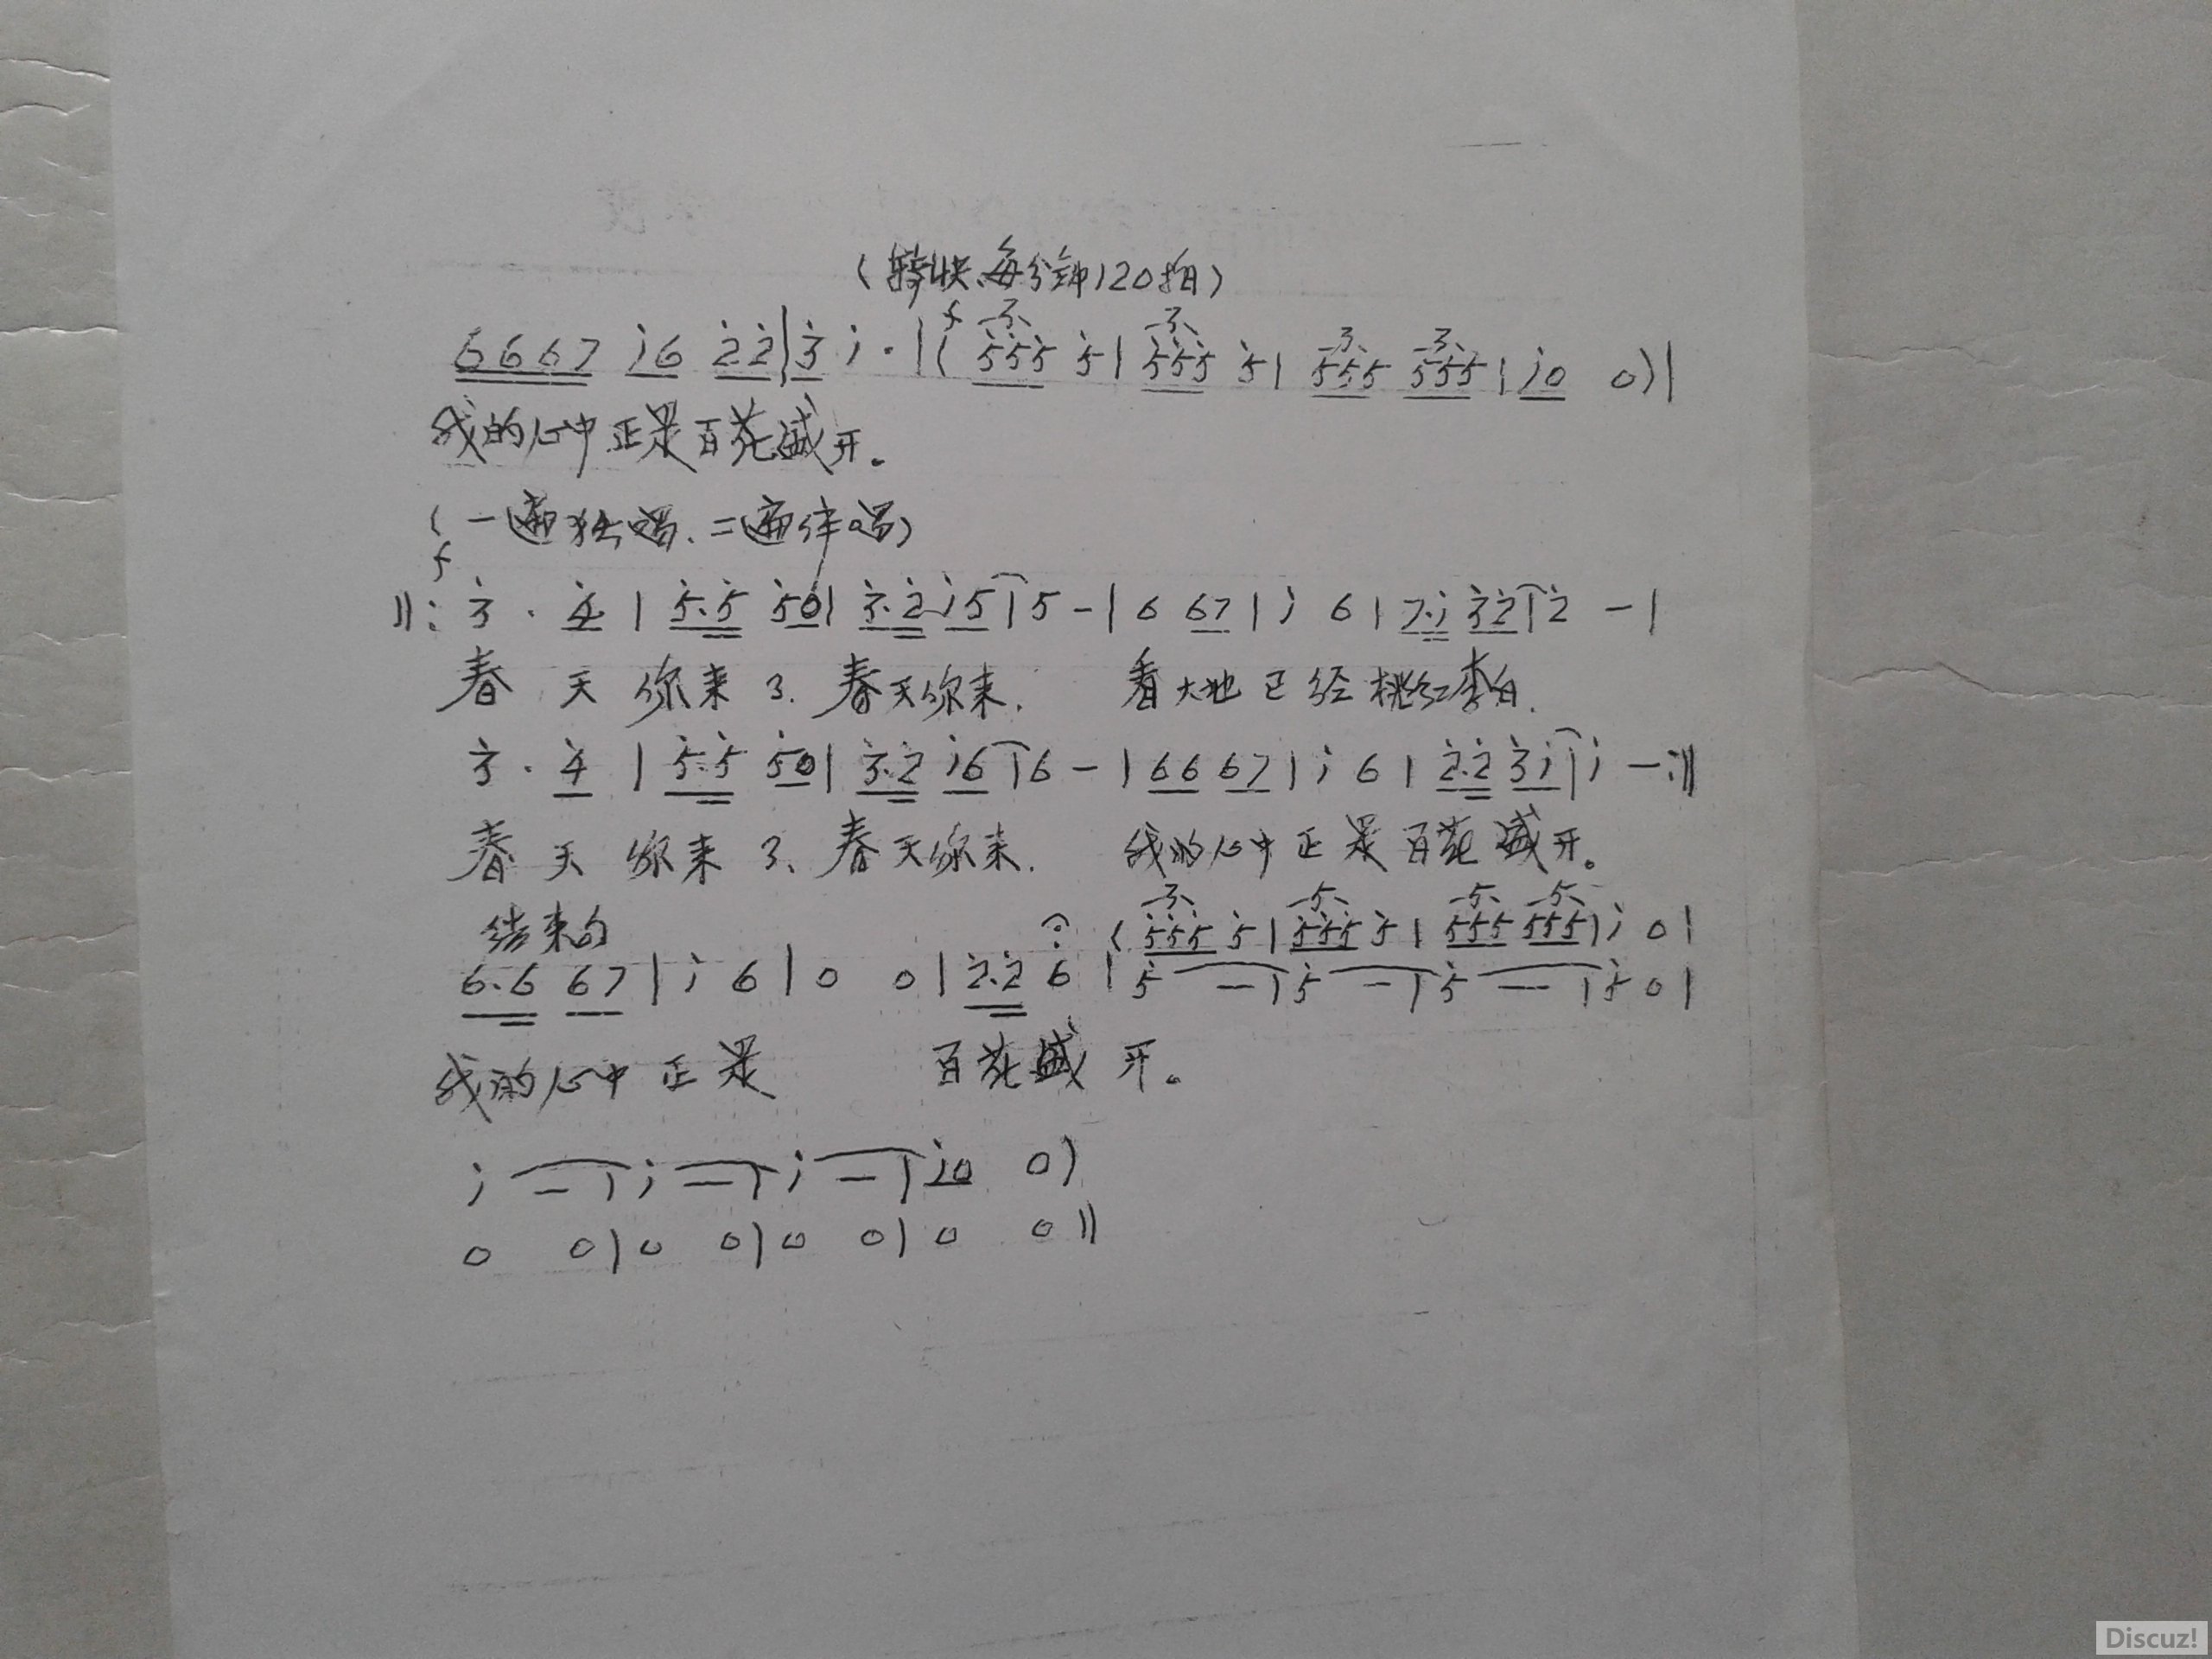 (转快、每分钟120拍)
6667 i6 2̇2̇|3̇ i·|(f 3 5̇5̇5̇ 5̇|3 5̇5̇5̇ 5̇|3 5̇5̇5 3 5̇5̇5̇|i0 0)|
我的心中正是百花盛开。
(一遍独唱、二遍伴唱)
f
||: 3̇ · 4̇ | 5̇.5̇ 5̇0| 3̇.2̇ i5|5 -|6 67|i 6|7.i 3̇2̇|2̇ -|
春 天 你来 了、春天你来. 看大地 已 经 桃红李白.
3̇ · 4̇ | 5̇.5̇ 5̇0| 3̇.2̇ i6|6 -|66 67|i 6|2̇.2̇ 3̇i|i -:||
春 天 你来 了、春天你来. 我的心中 正 是 百花 盛开。
结束句
(3 5̇5̇5̇ 5̇|5 5̇5̇5̇ 5̇|5 5̇5̇5 5 5̇5̇5̇|i 0|
6.6 67|i 6|0 0|2̇.2̇ 6̇|5̇ -|5̇ -|5̇ -|5̇ 0|
我的心中 正 是 百花盛 开。
i -|i -|i -|i0 0)
0 0|0 0|0 0|0 0||
Discuz!